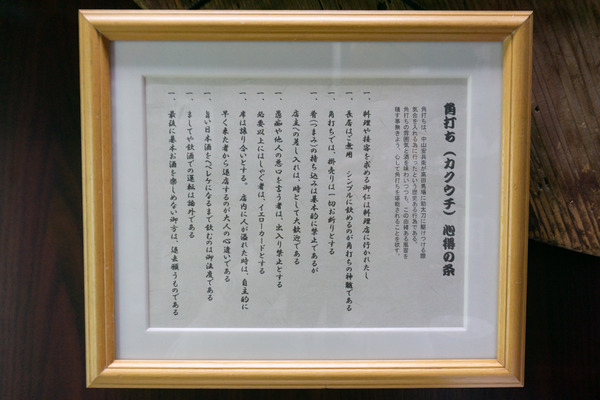 角打ち（カクウチ）心得の条
角打ちは、中山安兵衛が高田馬場に助太刀に駆けつける際
気合を入れる為に行ったという歴史ある行為である。
角打ちの雰囲気と酒を味わいつつも、この由緒ある風習を
穢す事無きよう、心して角打ちを堪能されることを欲す。
一、料理や接客を求める御仁は料理店に行かれたし
一、長居はご無用　シンプルに飲めるのが角打ちの神髄である
一、角打ちでは、掛売りは一切お断りとする
一、肴（つまみ）の持ち込みは基本的に禁止であるが
店主への差し入れは、時として大歓迎である
一、愚痴や他人の悪口を言う者は、出入り禁止とする
一、必要以上にはしゃぐ者は、イエローカードとする
一、席は譲り合いとする。店内に人が溢れた時は、自主的に
早く来た者から退店するのが大人の心遣いである
一、旨い日本酒をへべレケになるまで飲むのは御法度である
一、ましてや飲酒での運転は論外である
一、最後に基本お酒を楽しめない御方は、退去願うものである